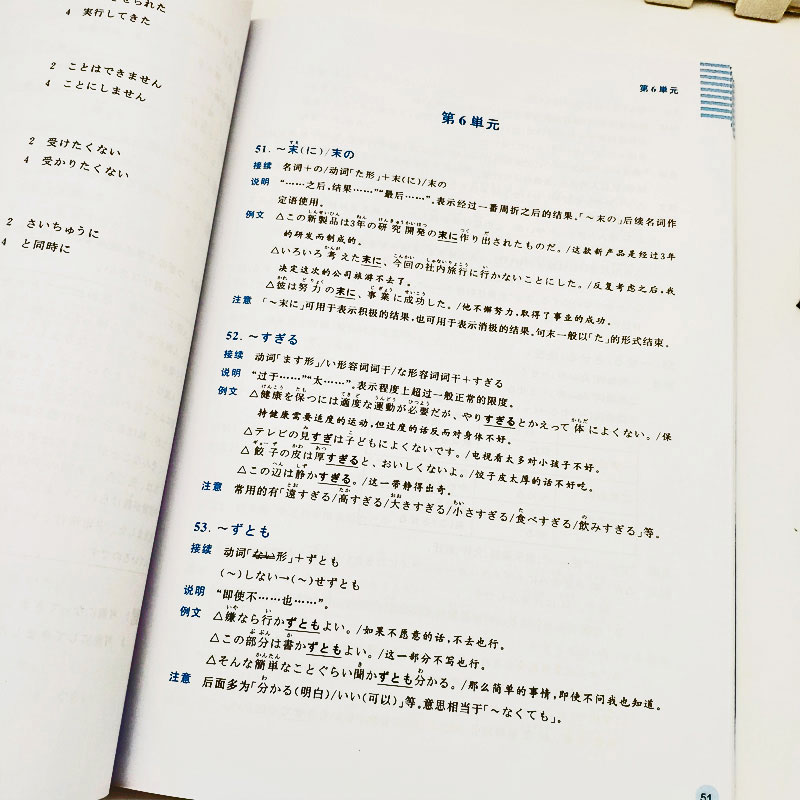 せられた
4 実行してきた
2 ことはできません
4 ことにしません
2 受けたくない
4 受かりたくない
2 さいちゅうに
4 と同時に
第6単元
第6単元
51. ～末(に)/末の
接续 名词＋の/动词「た形」＋末(に)/末の
说明 “……之后,结果……”“最后……”。表示经过一番周折之后的结果。「～末の」后续名词作
定语使用。
例文 △この新製品は3年の研究開発の末に作り出されたものだ。/这款新产品是经过3年
的研发而制成的。
△いろいろ考えた末に、今回の社内旅行に行かないことにした。/反复考虑之后,我
决定这次的公司旅游不去了。
△彼は努力の末に、事業に成功した。/他不懈努力,取得了事业的成功。
注意 「～末に」可用于表示积极的结果,也可用于表示消极的结果。句末一般以「た」的形式结束。
52. ～すぎる
接续 动词「ます形」/い形容词词干/な形容词词干＋すぎる
说明 “过于……”“太……”。表示程度上超过一般正常的限度。
例文 △健康を保つには適度な運動が必要だが、やりすぎるとかえって体によくない。/保
持健康需要适度的运动,但过度的话反而对身体不好。
△テレビの見すぎは子どもによくないです。/电视看太多对小孩子不好。
△餃子の皮は厚すぎると、おいしくないよ。/饺子皮太厚的话不好吃。
△この辺は静かすぎる。/这一带静得出奇。
注意 常用的有「遠すぎる/高すぎる/大きすぎる/小さすぎる/食べすぎる/飲みすぎる」等。
53. ～ずとも
接续 动词「ない形」＋ずとも
(～)しない→(～)せずとも
说明 “即使不……也……”。
例文 △嫌なら行かずともよい。/如果不愿意的话,不去也行。
△この部分は書かずともよい。/这一部分不写也行。
△そんな簡単なことぐらい聞かずとも分かる。/那么简单的事情,即使不问我也知道。
注意 后面多为「分かる(明白)/いい(可以)」等。意思相当于「～なくても」。
51